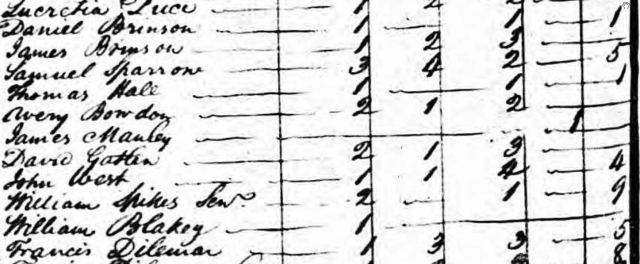 Lucretia Luce 1 2 2
Daniel Brinson 1 1 1
James Brinson 1 2 3
Samuel Sparrow 3 4 2 5
Thomas Hall 1 1 1
Avery Bowdon 2 1 2
James Manley 1
David Gatlin 2 1 3
John West 1 1 4 4
William Spikes Senr. 2 1 9
William Blakey 1 5
Francis Dilemar 1 3 3 8